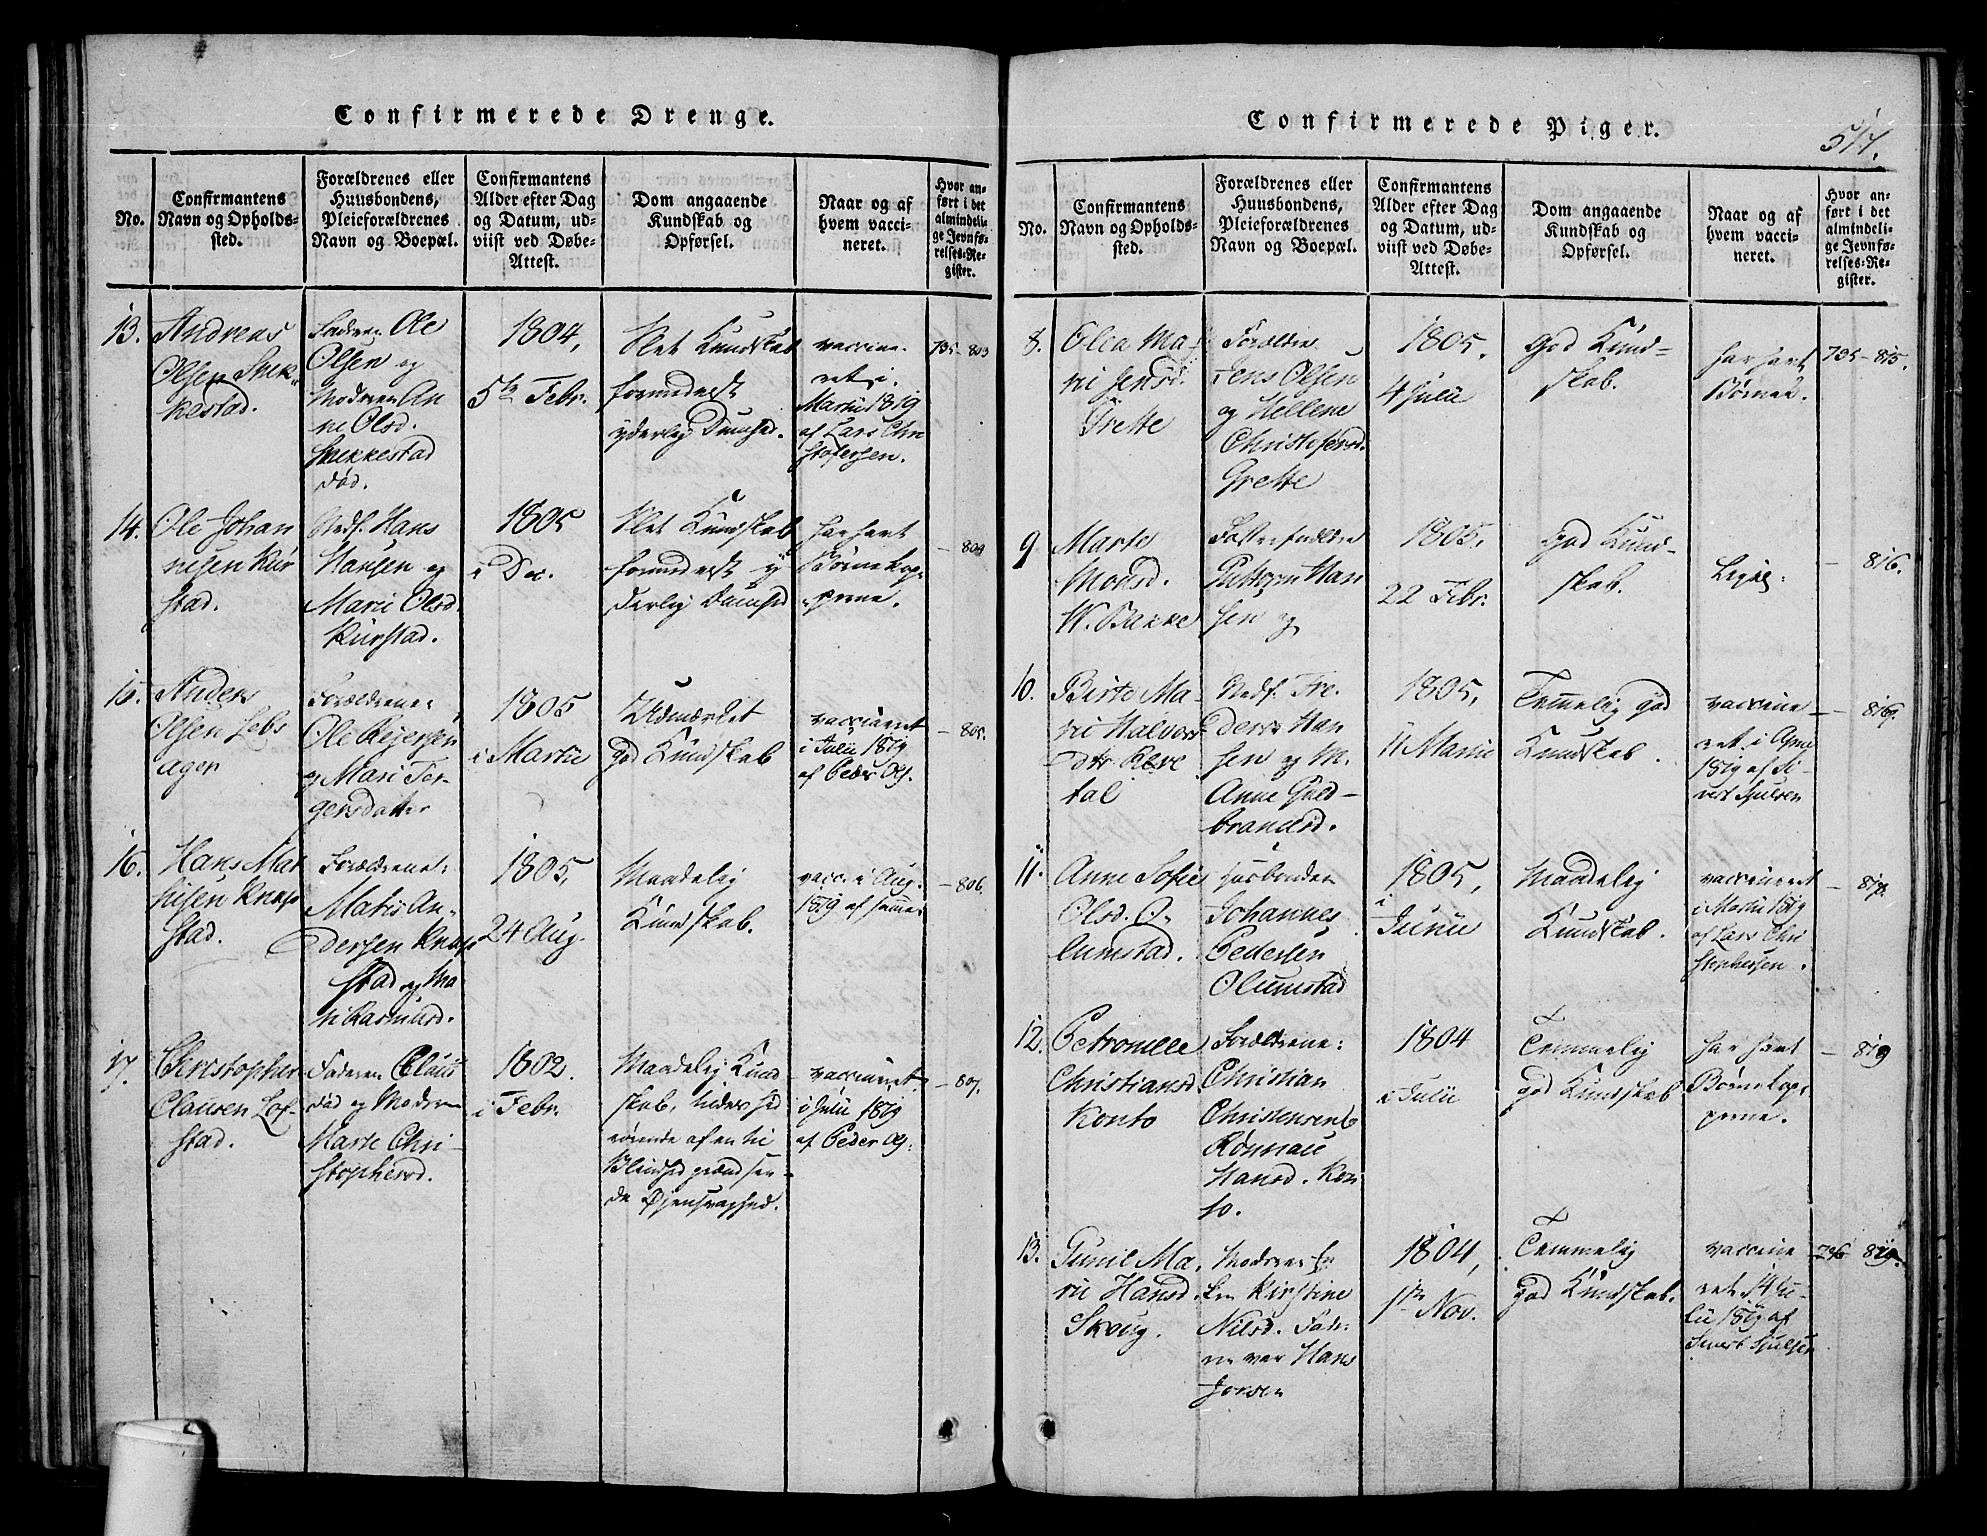 Confirmerede Drenge.
No.
Confirmantens
Navn og Opholds-
sted.
Forældrenes eller
Huusbondens,
Pleieforældrenes
Navn og Boepæl.
Confirmantens
Alder efter Dag
og Datum, ud-
viist ved Døbe-
Attest.
Dom angaaende
Kundskab og
Opførsel.
Naar og af
hvem vacci-
neret.
Hvor an-
ført i det
almindeli-
ge Jevnfø-
relses-Re-
gister.
13.
Andreas
Olsen
kestad.
Faderen Ole
Olsen og
Moderen An
ne Olsd.
Shekkestad
død.
1804,
5te Febr.
Slet Kundskab
formedelst
yderlig Dumhed.
vaccine-
ret i
Martii 1819
af Lars Chri
stofersen.
735-803
14.
Ole Johan
nesen Kur
stad.
Hans
Hansen og
Marie Olsd.
Kurstad.
1805
i Dec.
Slet Kundskab
formedelst y
derlig Dumhed
har havt
Børnekop-
perne.
- 804
15.
Anders
Olsen Lebs
ager
Forældrene:
Ole Reyersen
og Mari Ter-
gersdatter
1805
i Martii
Udmærket
god Kundskab
vaccineret
i Julii 1819
af Peder Ols.
- 805.
16.
Hans Mat
hisen Knap
stad.
Forældrene:
Matis An-
dersen Knap
stad og Ma
ri Rasmusd.
1805,
24 Aug.
Maadelig
Kundskab.
vacc. i Aug.
1819 af samme
- 806.
17.
Christopher
Clausen Lof-
stad.
Faderen Claus
død og Moderen
Marte Chri-
stophersd.
1802.
i Febr.
Maadelig Kund
skab,
rørende af en til
Blindhed grændsen-
de Øjensvaghed.
vaccineret
i Julii 1819
af Peder Ols.
- 807.
Confirmerede Piger.
517.
No.
Confirmantens
Navn og Opholds-
sted.
Forældrenes eller
Huusbondens,
Pleieforældrenes
Navn og Boepæl.
Confirmantens
Alder efter Dag
og Datum, ud-
viist ved Døbe-
Attest.
Dom angaaende
Kundskab og
Opførsel.
Naar og af
hvem vacci-
neret.
Hvor an-
ført i det
almindeli-
ge Jevnfø-
relses-Re-
gister.
8.
Olea Ma-
ri Jensd.
Grette
Forældre
Jens Olsen
og Hellene
Christofersd.
Grette
1805.
4 Julii
God Kund-
skab.
har havt
Børnek.
735-815.
9
Marte
Monsd.
W. Bakke
Fosterforældre
Guttorm Han
sen og
1805,
22 Febr.
God Kund-
skab.
Ligel:
- 816.
10.
Birte Ma-
ri Halvors
dtr.
tal
Fre-
deric Han
sen og M.
Anne Guld-
brandsd.
1805,
11 Martii
Temmelig god
Kundskab.
vaccine
ret i
1819 af Si-
vert Sjulsen
- 817.
11.
Anne Sofie
Olsd. O-
lumstad.
Husbonden
Johannes
Pedersen
Olumstad
1805,
i
Junii
Maadelig
Kundskab.
vaccineret
i Martii 1819
af Lars Chri
stophersen.
- 818.
12.
Petronelle
Christiansd.
Konto
Forældrene:
Christian
Christensen &
Rønnau
Hansd. Kon
to.
1804
i Julii
Temmelig
god Kundskab
har havt
Børnekop-
perne.
- 819
13.
Gunil Ma-
rie Hansd.
Skoug.
Moderen En
ken Kirstine
Nilsd. Fade-
ren var Hans
Jorsen
1804,
1ste Nov.
Temmelig
god Kundskab.
vaccine
ret 14 Ju-
lii 1819 af
Sivert Sjulsen
736 819.